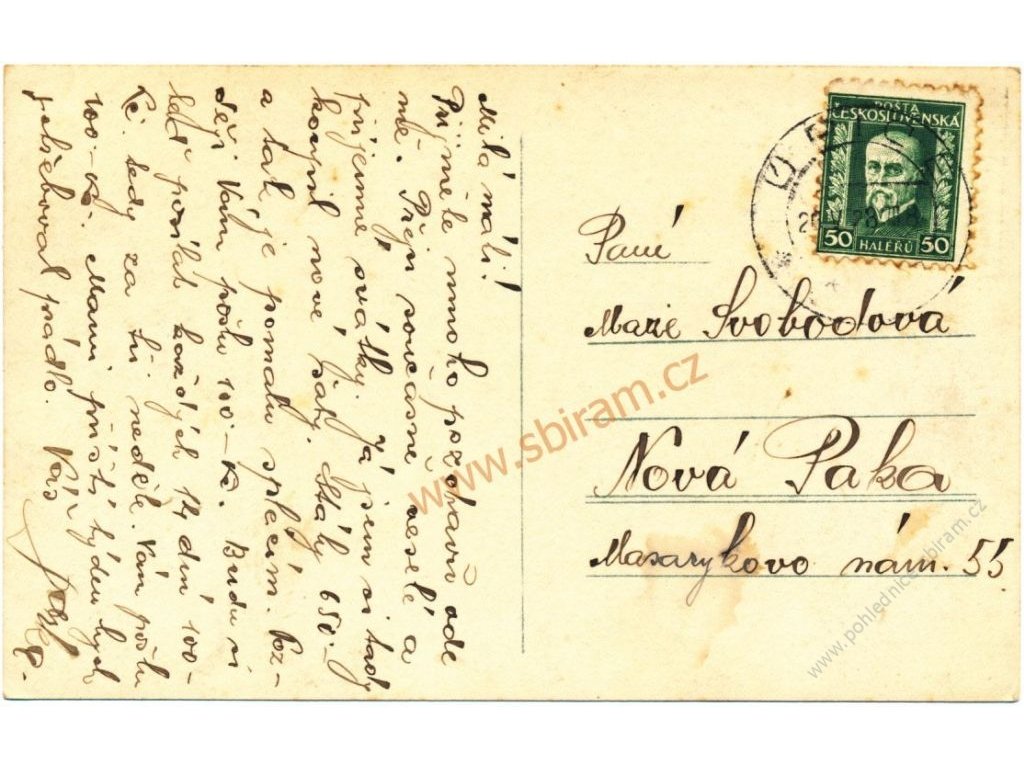 Milá máti!
Přijměte mnoho pozdravů ode
mě. Přeji současně veselé a
příjemné svátky. Já jsem si tady
koupil nové šaty. Stály 650.-
a tak je pomalu splácím. Poz-
ději Vám pošlu 100.- Kč. Budu si
teď posílat každých 14 dní 100-
Kč. tedy za tři neděle Vám pošlu
100.- Kč. Mami příští týden bych
potřeboval prádlo. Váš
Paní
Marie Svobodová
Nová Paka
Masarykovo nám. 55
POŠTA
ČESKOSLOVENSKÁ
50 HALÉŘŮ 50
www.sbiram.cz
www.pohlednice-sbiram.cz